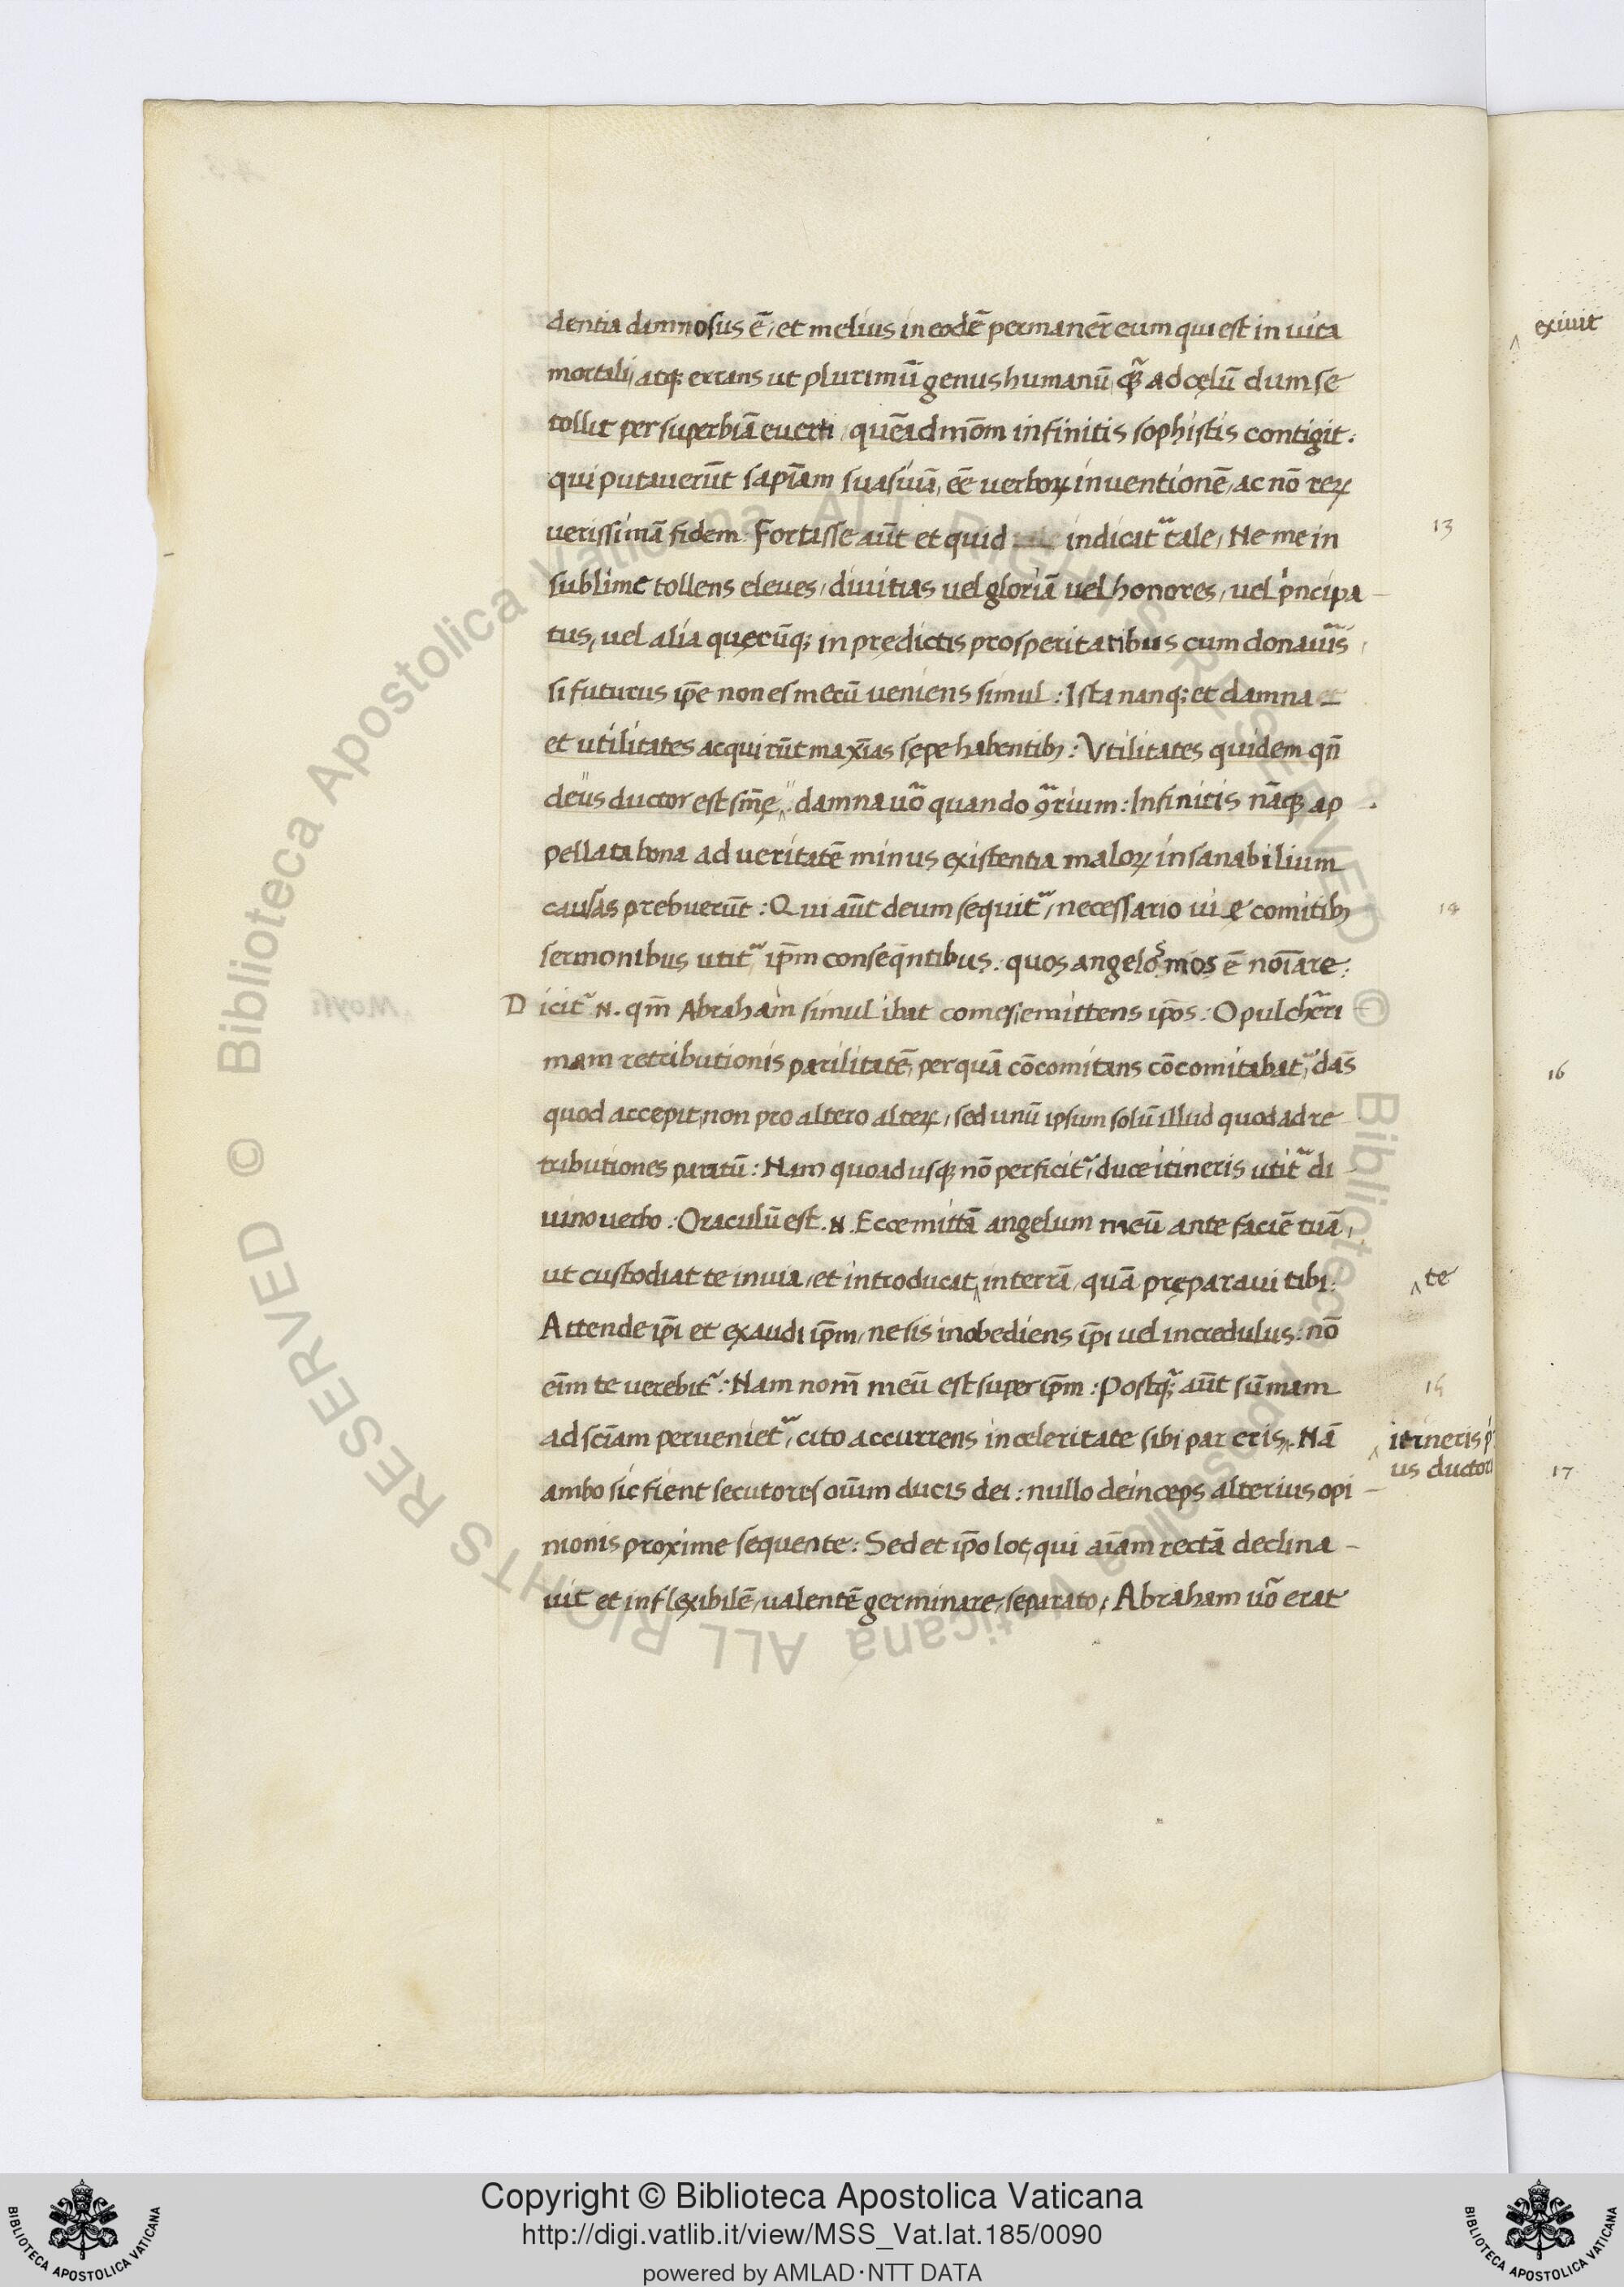 dentia damnosus ē, et melius in eodē permaner̄ eum qui est in uita
mortali, atq; errans ut plurimū genus humanū, q̈ꝫ ad cęlū dum se
tollit per superbiā euerti, quēadmōm infinitis sophistis contigit:
qui putauerūt sapīam suasiuā, eē uerboꝝ inuentionē, ac nō reꝝ
uerissimā fidem. Fortasse aūt et quid indicat᷑ tale, Ne me in
13
sublime tollens eleues, diuitias uel gloriā uel honores, uel pͥncipa-
tus, uel alia quęcūq; in prędictis prosperitatibus cum donau᷑is,
si futurus ip̄e non es mecū ueniens simul: Ista nanq; et damna et
et utilitates acquirūt maxīas sępe habentibꝫ: Vtilitates quidem qn̄
deus ductor est sm̄ę, damna uō quando ꝯ᷑rium: Infinitis nāqꝫ ap
pellata bona ad ueritatē minus existentia maloꝝ insanabilium
causas prebuerūt: Qui aūt deum sequit᷑, necessario uię comitibꝫ
14
sermonibus utit᷑ ip̄m conseq̄ntibus: quos angelos mos ē noīare:
Dicit᷑ .N. qm̄ Abraham simul ibat comes, emittens ip̄os: O pulcher᷑ri
mam retributionis parilitatē, per quā cōcomitans cōcomitabat᷑, dās
quod accepit, non pro altero alterꝝ, sed unū ipsum solū illud quod ad re-
tributiones paratū: Nam quoad usqꝫ nō perficit᷑, duce itineris utit᷑ di-
uino uerbo: Oraculū est .N. Ecce mittā angelum meū ante faciē tuā,
ut custodiat te in uia, et introducat ‸ in terrā, quā pręparaui tibi:
‸ te
Attende ip̄i et exaudi ip̄m, ne sis inobediens ip̄i uel incredulus: nō
eīm te uerebit᷑: Nam nom̄ meū est super ip̄m: Postq̈ꝫ aūt sūmam
15
ad scīam perueniet᷑, cito accurrens in celeritate sibi par eris‸. Nā
‸ itineris p
us ductor
ambo sic fient secutores oīum ducis dei: nullo deinceps alterius opi-
nionis proxime sequente: Sed et ip̄o lot, qui aīam rectā declina-
uit et inflexibilē, ualentē germinare, separato, Abraham uō erat
‸ exiuit
16
17
Copyright © Biblioteca Apostolica Vaticana
http://digi.vatlib.it/view/MSS_Vat.lat.185/0090
powered by AMLAD·NTT DATA
BIBLIOTECA APOSTOLICA VATICANA
BIBLIOTECA APOSTOLICA VATICANA
© Biblioteca Apostolica Vaticana ALL RIGHTS RESERVED © Biblioteca Apostolica Vaticana ALL RIGHTS RESERVED